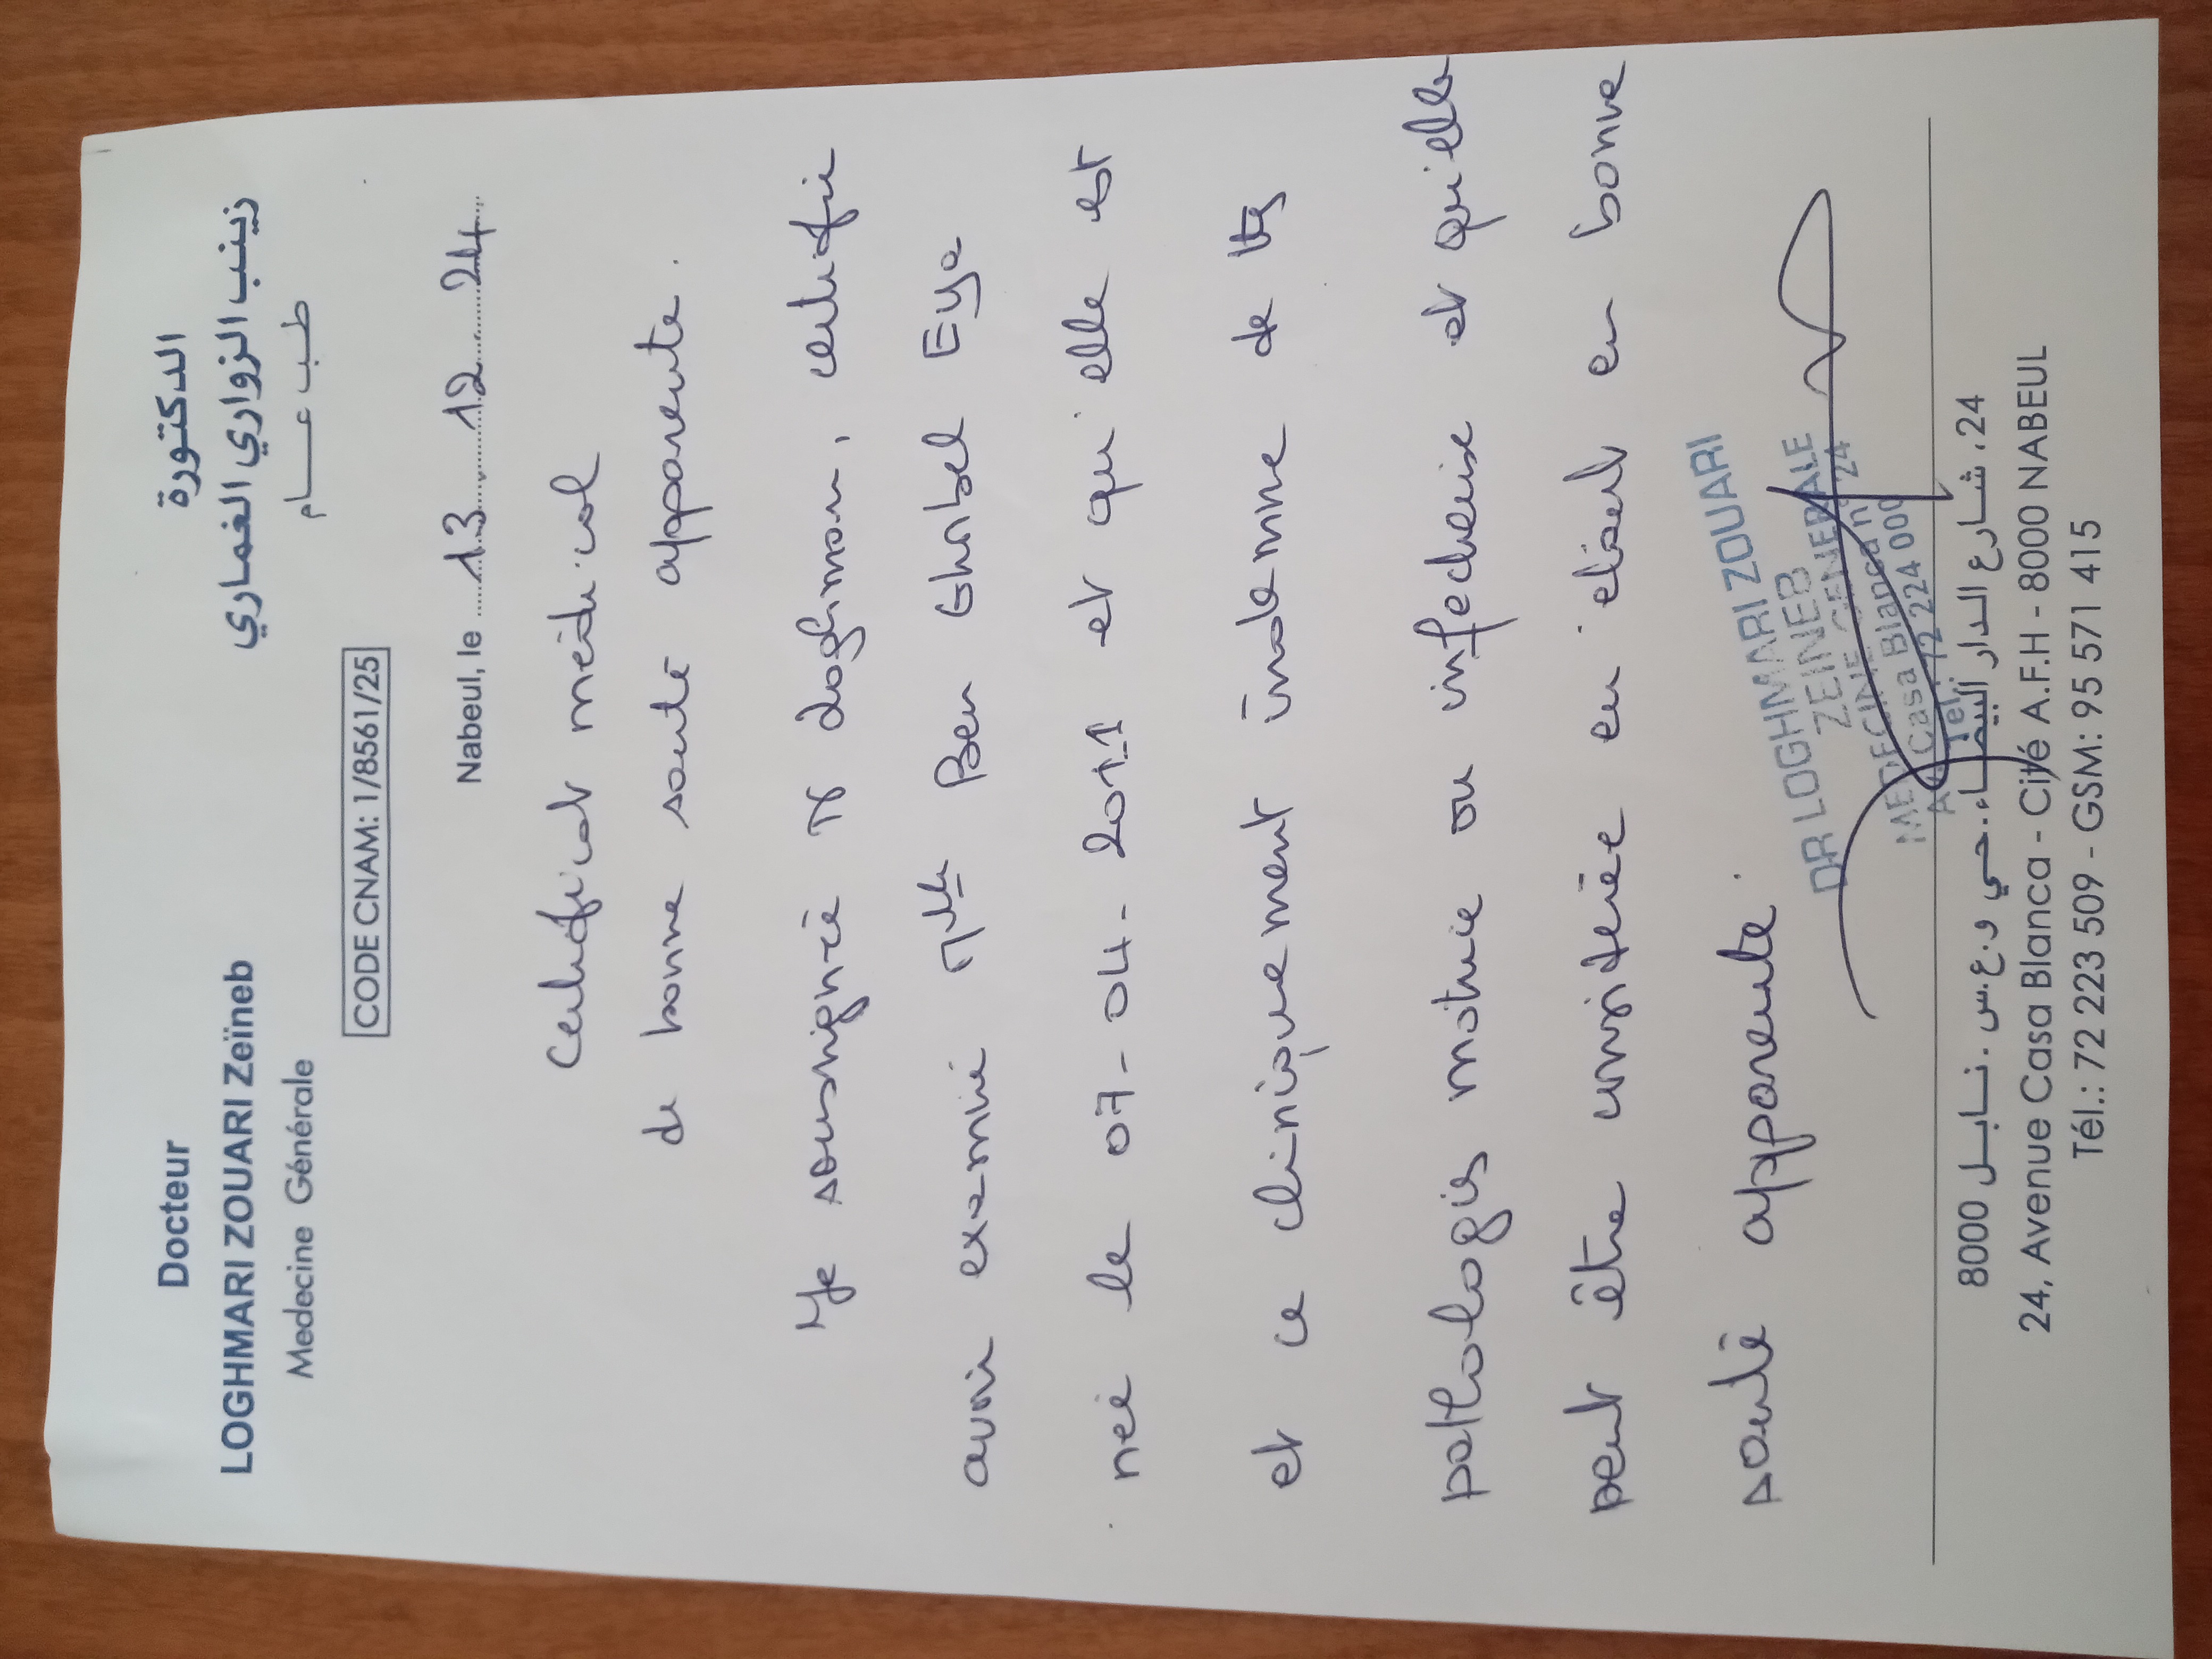 Docteur
LOGHMARI ZOUARI Zeïneb
Medecine Générale
الدكتورة
زينب الزواري الغماري
طب عام
CODE CNAM: 1/8561/25
Nabeul, le 13 12 24
Certificat médical
de bonne santé apparente.
Je soussignée Dr Loghmari, certifie
avoir examiné Mlle Ben Ghorbel Eya
née le 07-04-2011 et qu'elle est
et ce cliniquement indemne de ttes
pathologies motrice ou infectieuse et qu'elle
peut être considérée en étant en bonne
santé apparente.
DR LOGHMARI ZOUARI
ZEINEB
MEDECINE GENERALE
Casa Blanca n° 24
Tel: 72 224 000
24، شارع الدار البيضاء، حي و.ع.س. نابل 8000
24, Avenue Casa Blanca - Cité A.F.H - 8000 NABEUL
Tél.: 72 223 509 - GSM: 95 571 415